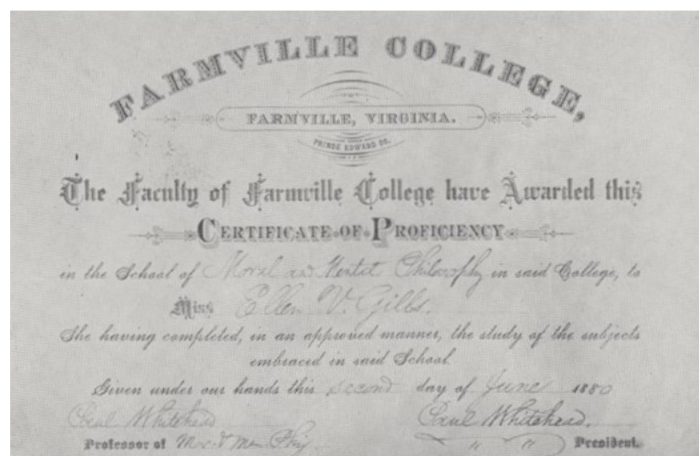 FARMVILLE COLLEGE,
FARMVILLE, VIRGINIA.
PRINCE EDWARD CO.
The Faculty of Farmville College have Awarded this
CERTIFICATE OF PROFICIENCY
in the School of Moral and Mental Philosophy in said College, to
Miss Ellen V. Gills.
She having completed, in an approved manner, the study of the subjects
embraced in said School
Given under our hands this second day of June 1880
Paul Whitehead Paul Whitehead.
Professor of Mor. & Men Phy " " President.